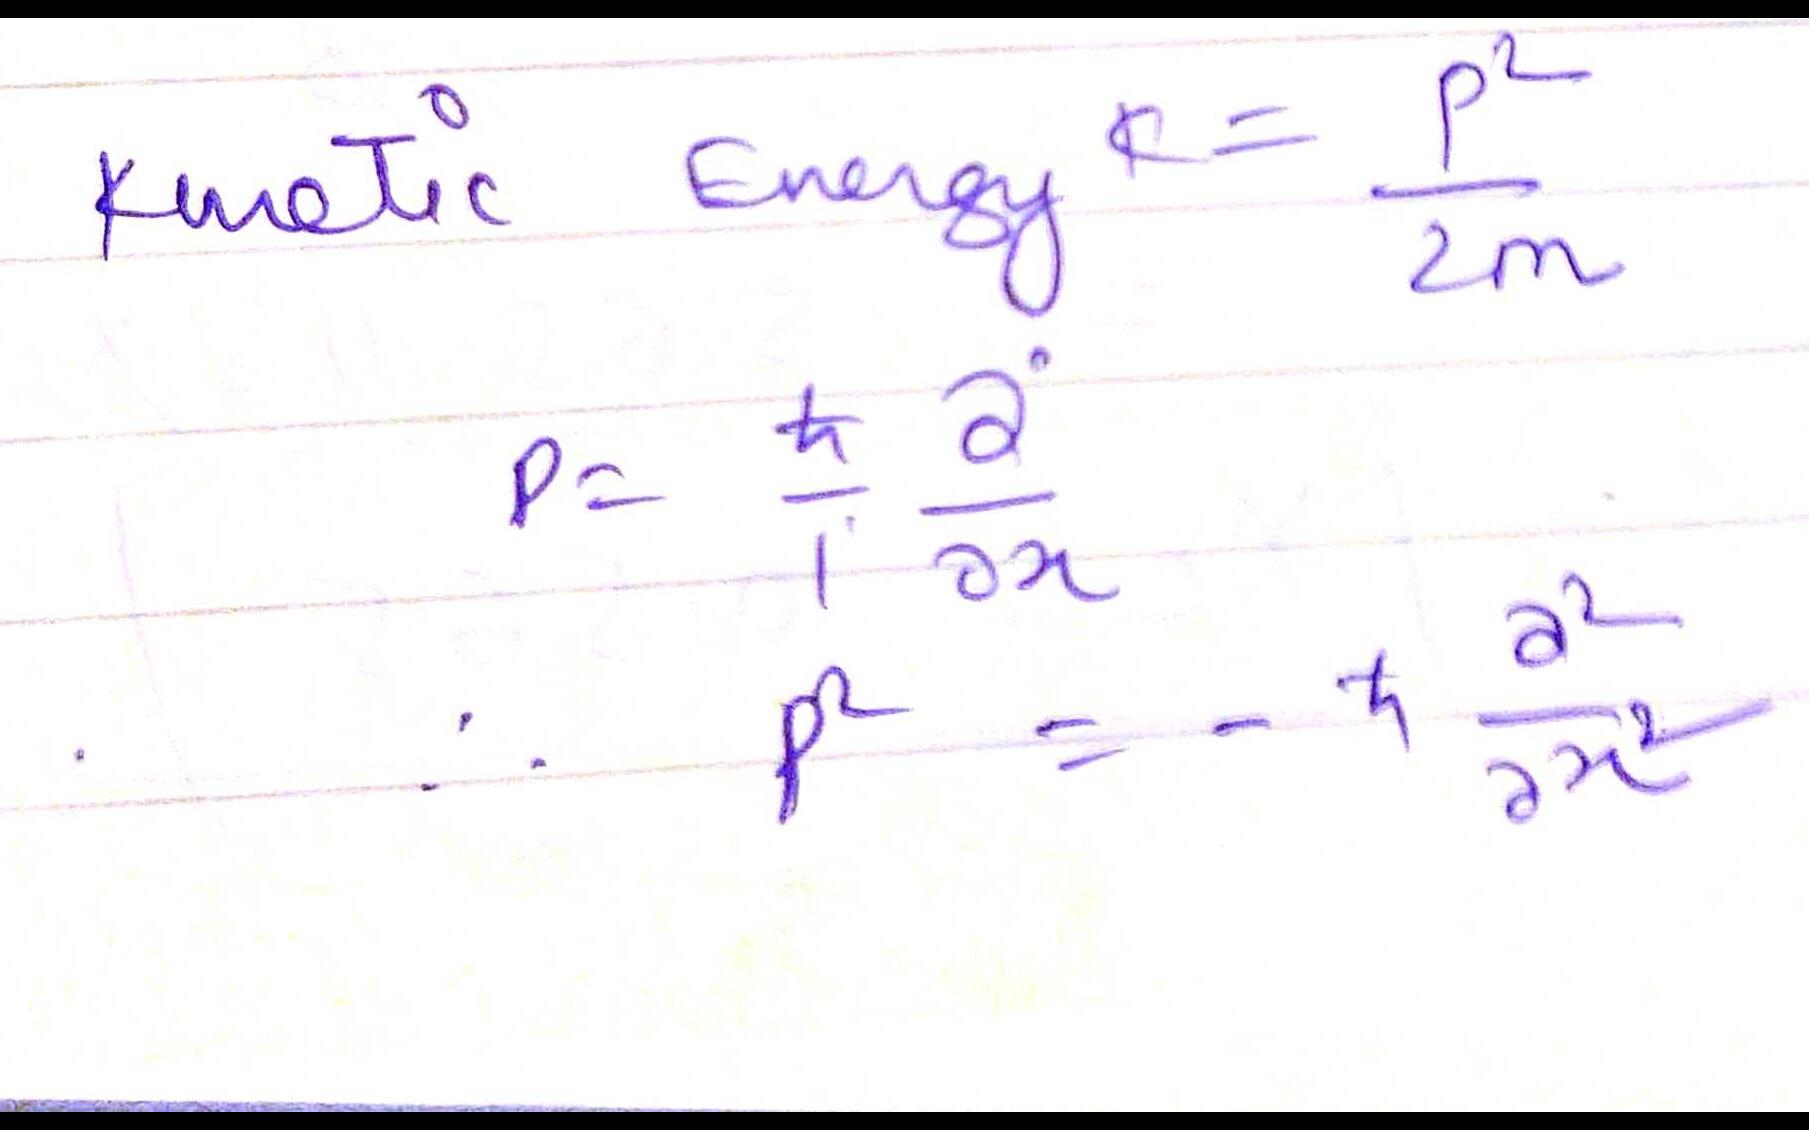 Kinetic Energy K = p²/2m
P = ħ/i ∂/∂x
∴ p² = - ħ ∂²/∂x²